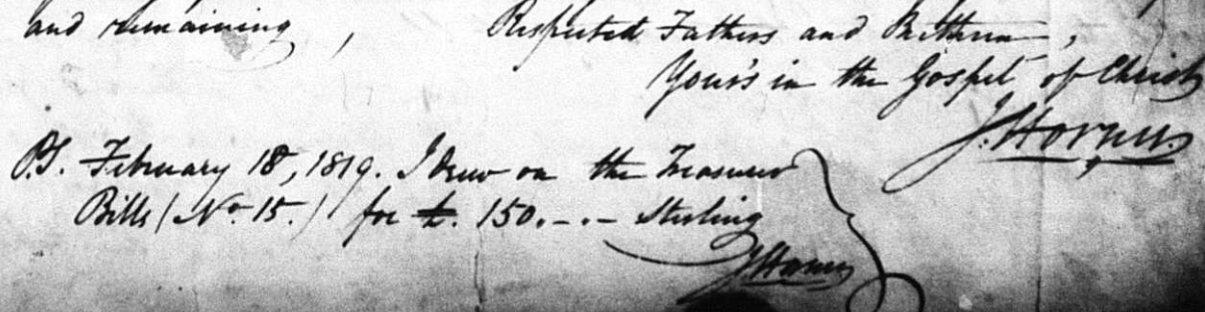 and remaining, Respected Fathers and Brethren,
Your's in the Gospel of Christ
J. Horner.
P.S. February 18, 1819. I drew on the Treasurer
Bills (No. 15.) for £. 150.-.- Sterling
J Horner